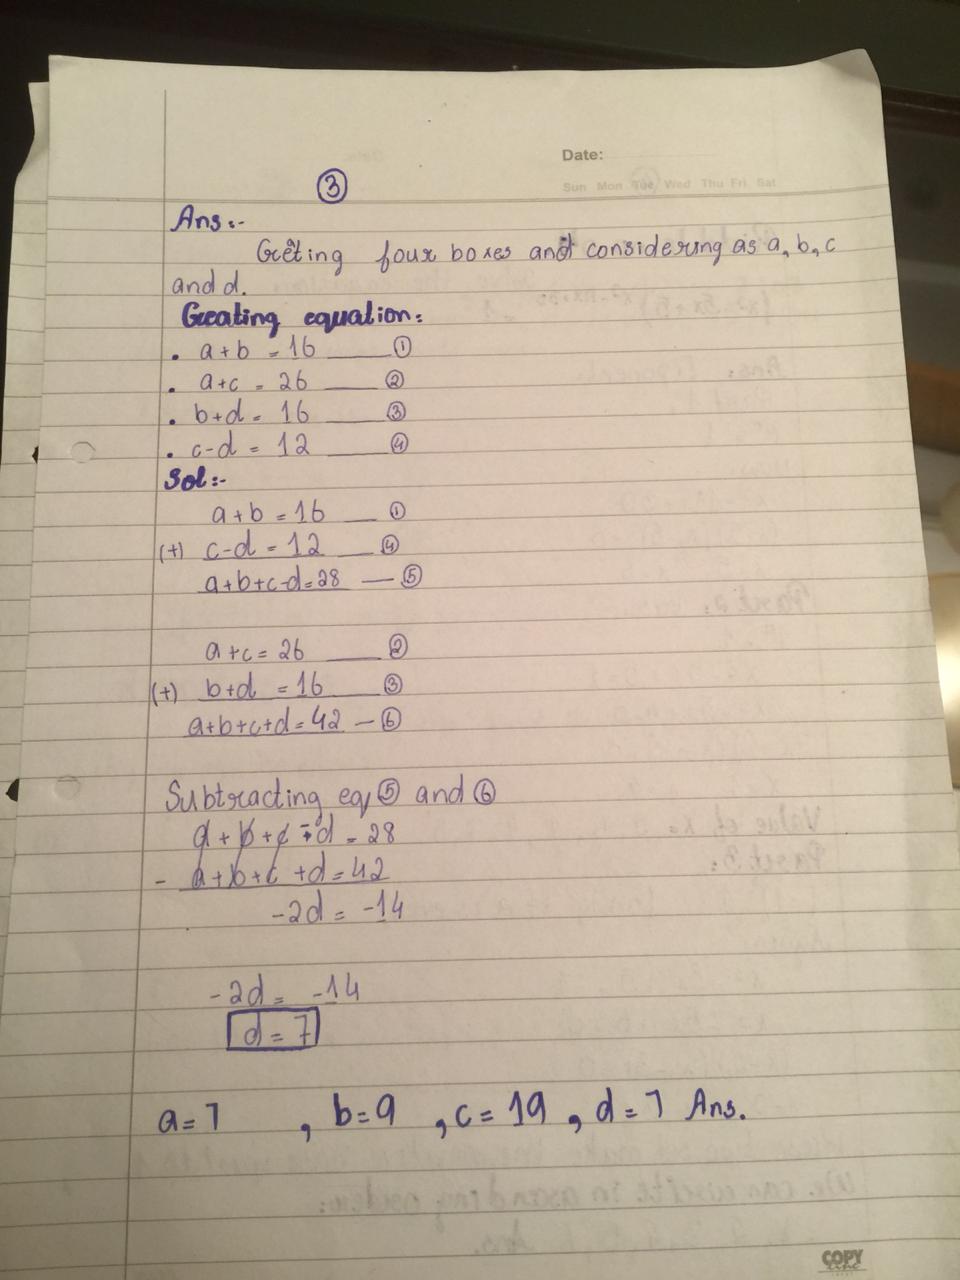 Date:
Sun Mon Tue Wed Thu Fri Sat
③
Ans :-
Geting four boxes and considering as a, b, c
and d.
Creating equation:
. a+b = 16 ____ ①
. a+c = 26 ____ ②
. b+d = 16 ____ ③
. c-d = 12 ____ ④
Sol:-
a+b = 16 ___ ①
(+) c-d = 12 ___ ④
a+b+c-d=28 — ⑤
a+c= 26 ____ ②
(+) b+d = 16 ____ ③
a+b+c+d=42 — ⑥
Subtracting eq ⑤ and ⑥
a + b + c - d = 28
- a+b+c +d=42
-2d = -14
-2d = -14
d = 7
a=7 , b=9 , c=19 , d=7 Ans.
COPY